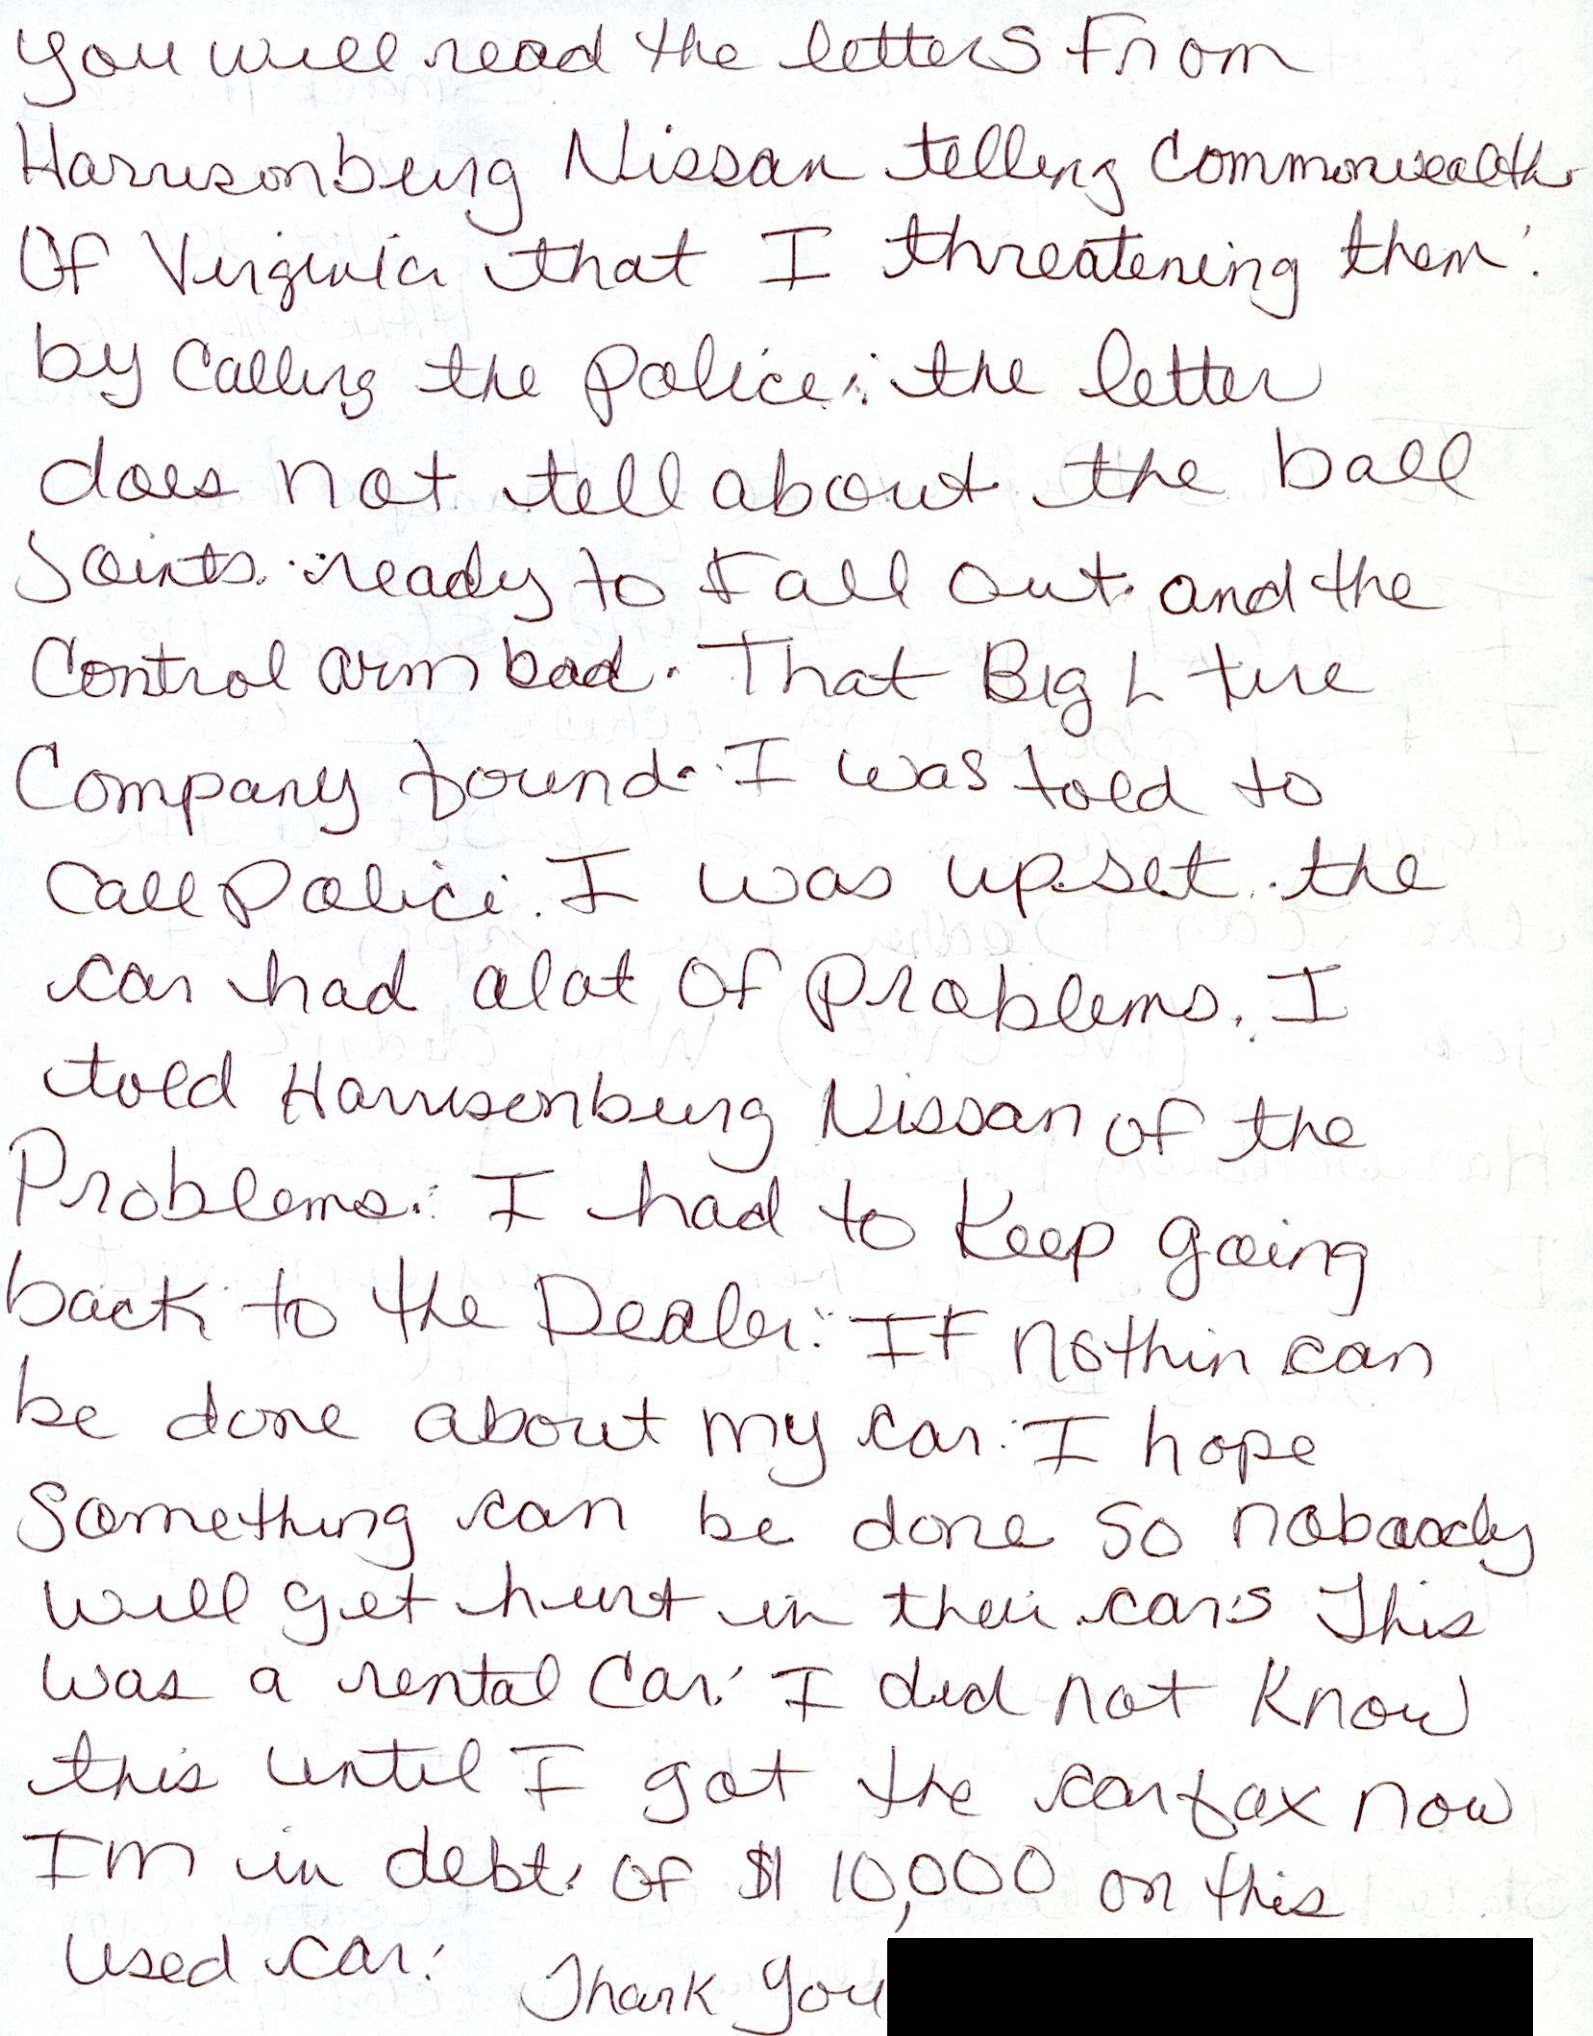 you will read the letters From
Harrisonburg Nissan telling Commonwealth
Of Virginia that I threatening them.
by Calling the police. the letter
does not tell about the ball
Joints. ready to Fall out. and the
Control arm bad. That Big L tire
Company found. I was told to
Call Police. I was upset. the
car had alot Of Problems. I
told Harrisonburg Nissan of the
Problems. I had to Keep going
back to the Dealer. IF nothin can
be done about my car. I hope
Something can be done So nobody
will get hurt in their cars This
was a rental Car. I did not Know
this until I got the carfax now
Im in debt. Of $10,000 on this
used car. Thank You